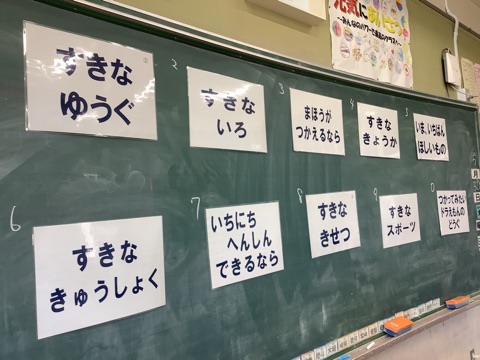 元気にあいさつ
すきな
ゆうぐ
2
すきな
いろ
3
まほうが
つかえるなら
4
すきな
きょうか
5
いま、いちばん
ほしいもの
6
すきな
きゅうしょく
7
いちにち
へんしん
できるなら
8
すきな
きせつ
9
すきな
スポーツ
つかってみたい
ドラえもんの
どうぐ
月
日